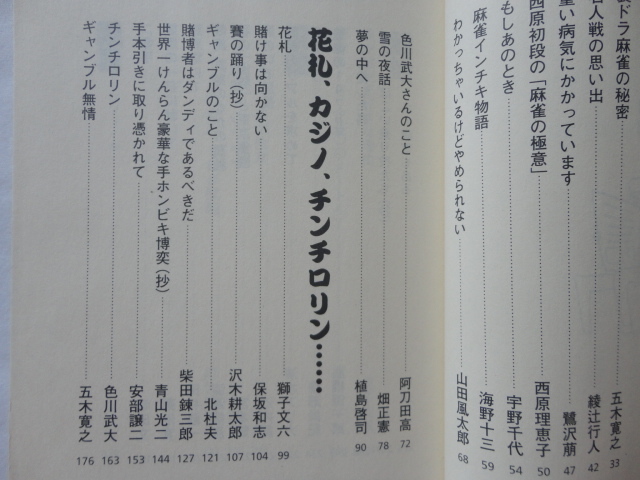 ドラ麻雀の秘密 五木寛之 33
名人戦の思い出 綾辻行人 42
重い病気にかかっています 鷺沢萠 47
西原初段の「麻雀の極意」 西原理恵子 50
もしあのとき 宇野千代 54
麻雀インチキ物語 海野十三 59
わかっちゃいるけどやめられない 山田風太郎 68
色川武大さんのこと 阿刀田高 72
雪の夜話 畑正憲 78
夢の中へ 植島啓司 90
花札、カジノ、チンチロリン……
花札 獅子文六 99
賭け事は向かない 保坂和志 104
賽の踊り(抄) 沢木耕太郎 107
ギャンブルのこと 北杜夫 121
賭博者はダンディであるべきだ 柴田錬三郎 127
世界一けんらん豪華な手ホンビキ博奕(抄) 青山光二 144
手本引きに取り憑かれて 安部譲二 153
チンチロリン 色川武大 163
ギャンブル無情 五木寛之 176